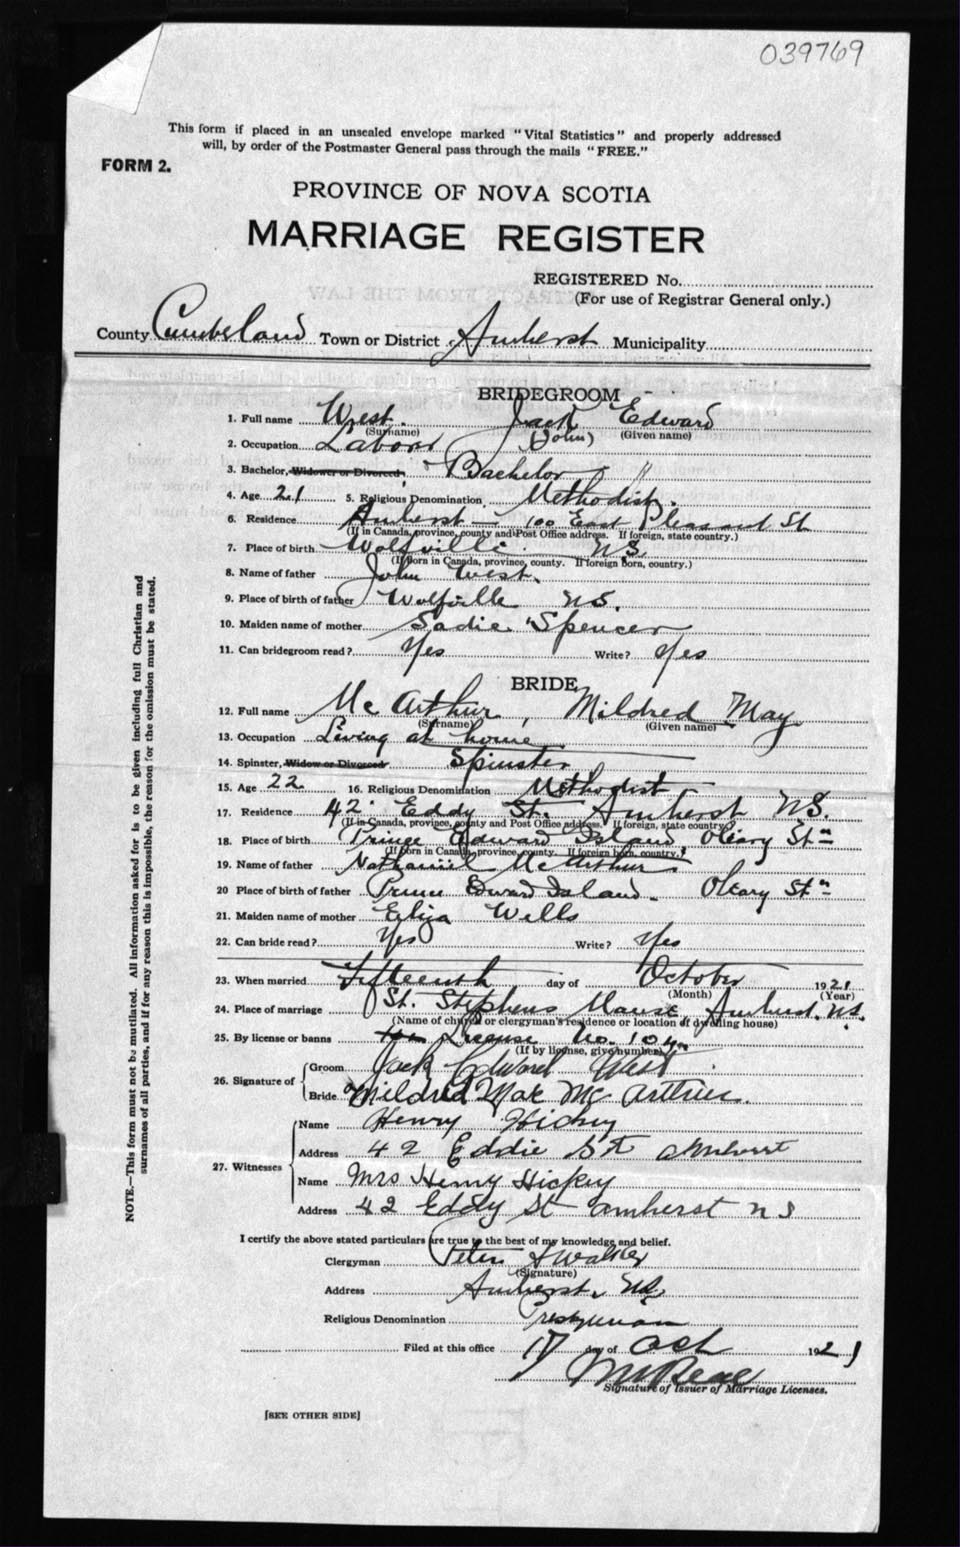 039769
This form if placed in an unsealed envelope marked "Vital Statistics" and properly addressed
will, by order of the Postmaster General pass through the mails "FREE."
FORM 2.
PROVINCE OF NOVA SCOTIA
MARRIAGE REGISTER
REGISTERED No.
(For use of Registrar General only.)
County Cumberland Town or District Amherst Municipality
BRIDEGROOM
1. Full name West. Jack Edward
(Surname) (John) (Given name)
2. Occupation Labour
3. Bachelor, Widower or Divorced. Bachelor
4. Age 21 5. Religious Denomination Methodist
6. Residence Amherst - 100 East Pleasant St
(If in Canada, province, county and Post Office address. If foreign, state country.)
7. Place of birth Wolfville N.S.
(If born in Canada, province, county. If foreign born, country.)
8. Name of father John West.
9. Place of birth of father Wolfville N.S.
10. Maiden name of mother Sadie Spencer
11. Can bridegroom read? Yes Write? Yes
BRIDE
12. Full name McArthur, Mildred May
(Surname) (Given name)
13. Occupation Living at home
14. Spinster, Widow or Divorced Spinster
15. Age 22 16. Religious Denomination Methodist
17. Residence 42 Eddy St. Amherst N.S.
(If in Canada, province, county and Post Office address. If foreign, state country.)
18. Place of birth Prince Edward Island, Oleary Stn
(If born in Canada, province, county. If foreign born, country.)
19. Name of father Nathaniel McArthur
20 Place of birth of father Prince Edward Island. Oleary Stn
21. Maiden name of mother Eliza Wells
22. Can bride read? Yes Write? Yes
23. When married Fifteenth day of October 1921
(Month) (Year)
24. Place of marriage St. Stephens Manse, Amherst. N.S.
(Name of church or clergyman's residence or location of dwelling house)
25. By license or banns License No.
(If by license, give number)
26. Signature of Groom Jack Edward West
Bride Mildred Mae McArthur.
27. Witnesses Name Henry Hickey
Address 42 Eddie St Amherst
Name Mrs Henry Hickey
Address 42 Eddy St amherst n s
I certify the above stated particulars are true to the best of my knowledge and belief.
Clergyman Peter Walker
(Signature)
Address Amherst, N.S.
Religious Denomination Presbyterian
Filed at this office 17 day of Oct 1921
Signature of Issuer of Marriage Licenses.
[SEE OTHER SIDE]
NOTE.—This form must not be mutilated. All information asked for is to be given including full Christian and
surnames of all parties, and if for any reason this is impossible, the reason for the omission must be stated.